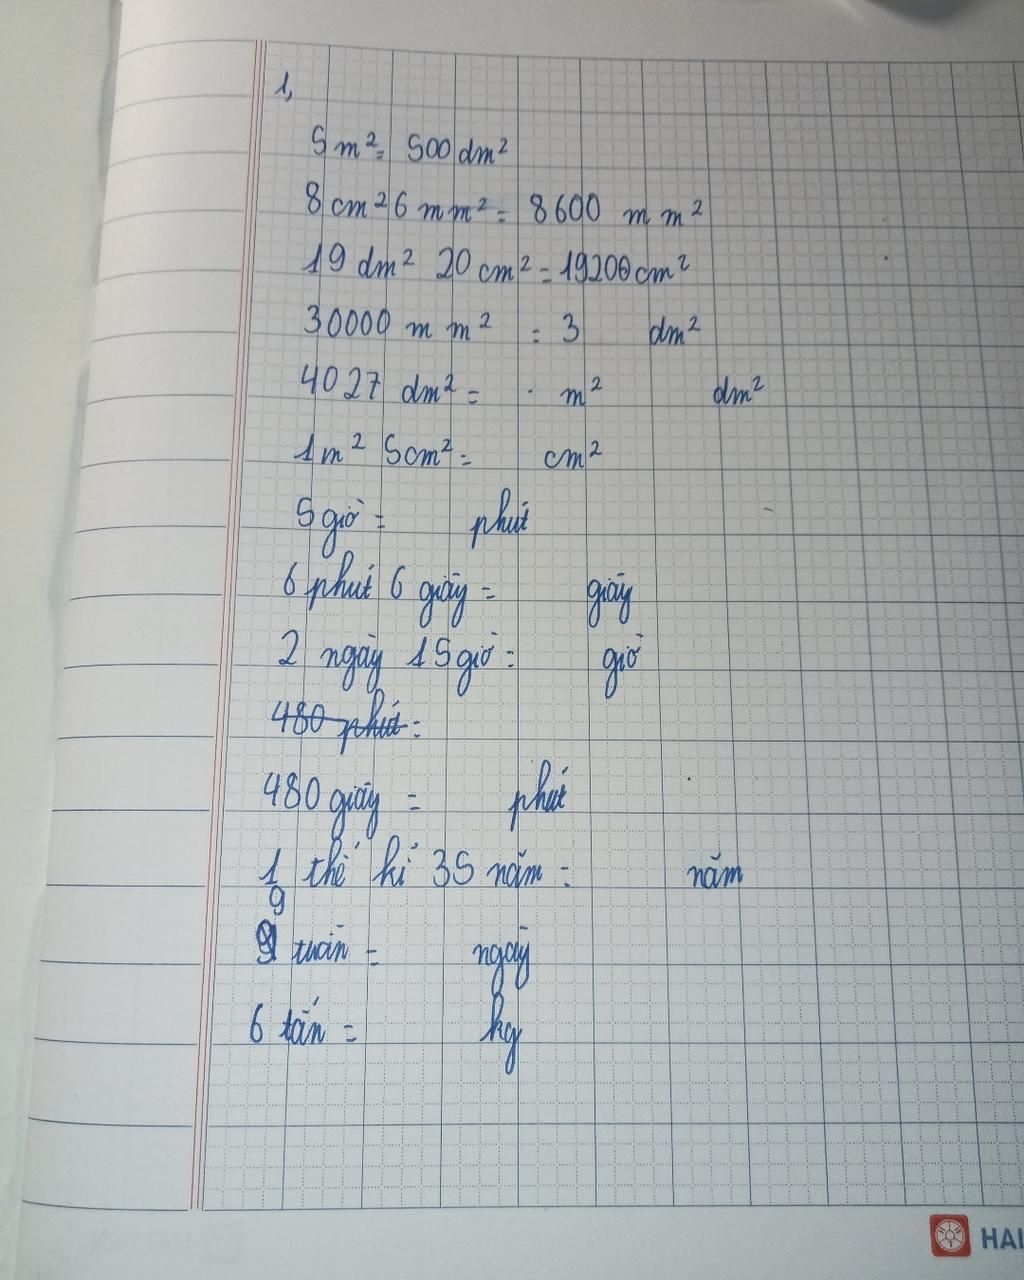 1,
5 m² = 500 dm²
8 cm² 6 mm² = 8600 mm²
19 dm² 20 cm² = 19200 cm²
30000 mm² = 3 dm²
4027 dm² = . m² dm²
1 m² 5 cm² = cm²
5 giờ = phút
6 phút 6 giây = giây
2 ngày 15 giờ = giờ
480 phút =
480 giây = phút
1 thế kỉ 35 năm = năm
9
9 tuần = ngày
6 tấn = kg
HẢI